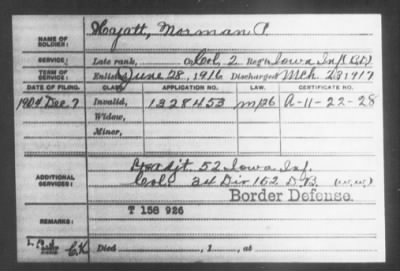 NAME OF SOLDIER: Hyatt, Norman P.
SERVICE: Late rank, Co. Col. 2 Reg't Iowa Inf
TERM OF SERVICE: Enlisted June 28, 1916 Discharged Mch. 28 1917
DATE OF FILING. CLASS. APPLICATION NO. LAW. CERTIFICATE NO.
1904 Dec. 7 Invalid, 1328453 A-11-22-28
Widow,
Minor,
ADDITIONAL SERVICES: 52 Iowa Inf.
Col. 34 Div 162 D.B. (W.W.)
Border Defense.
T 158 926
REMARKS:
Died , 1 , at